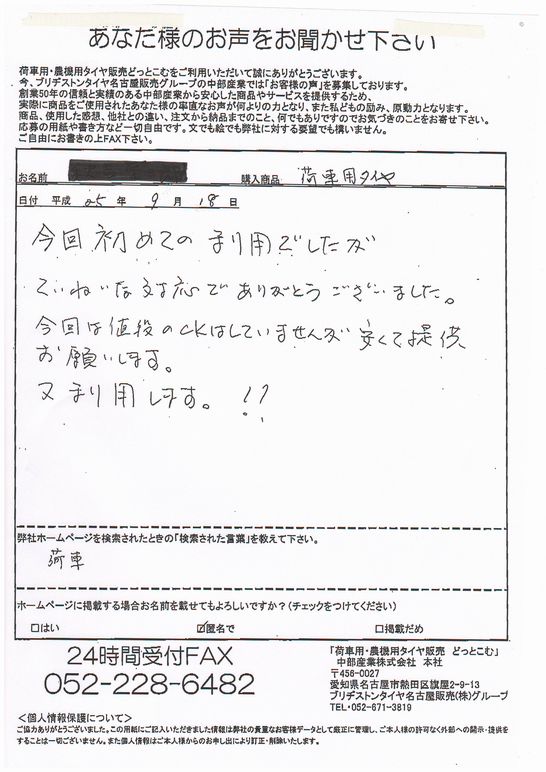 あなた様のお声をお聞かせ下さい
荷車用・農機用タイヤ販売どっとこむをご利用いただいて誠にありがとうございます。
今、ブリヂストンタイヤ名古屋販売グループの中部産業では「お客様の声」を募集しております。
創業50年の信頼と実績のある中部産業から安心した商品やサービスを提供するため、
実際に商品をご使用されたあなた様の率直なお声が何よりの力となり、また私どもの励み、原動力となります。
商品、使用した感想、他社との違い、注文から納品までのこと、何でもありですのでお気づきのことをお寄せ下さい。
応募の用紙や書き方など一切自由です。文でも絵でも弊社に対する要望でも構いません。
ご自由にお書きの上FAX下さい。
お名前 購入商品 荷車用タイヤ
日付 平成 25 年 9 月 18 日
今回初めての利用でしたが
ていねいな対応でありがとうございました。
今回は値段のCKはしていませんが安くて提供
お願いします。
又利用します。!!
弊社ホームページを検索されたときの「検索された言葉」を教えて下さい。
荷車
ホームページに掲載する場合お名前を載せてもよろしいですか?(チェックをつけてください)
□はい ☑匿名で □掲載だめ
24時間受付FAX
052-228-6482
「荷車用・農機用タイヤ販売 どっとこむ」
中部産業株式会社 本社
〒456-0027
愛知県名古屋市熱田区旗屋2-9-13
ブリヂストンタイヤ名古屋販売(株)グループ
TEL・052-671-3819
<個人情報保護について>
ご協力ありがとうございました。この用紙にご記入いただきました情報は弊社の貴重なお客様データとして厳正に管理し、ご本人様の許可なく外部への開示・提供を
することは一切ございません。また個人情報はご本人様からのお申し出により訂正・削除いたします。